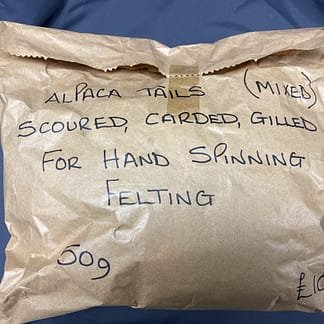 ALPACA TAILS (MIXED)
SCOURED, CARDED, GILLED
FOR HAND SPINNING
FELTING
50g
£10